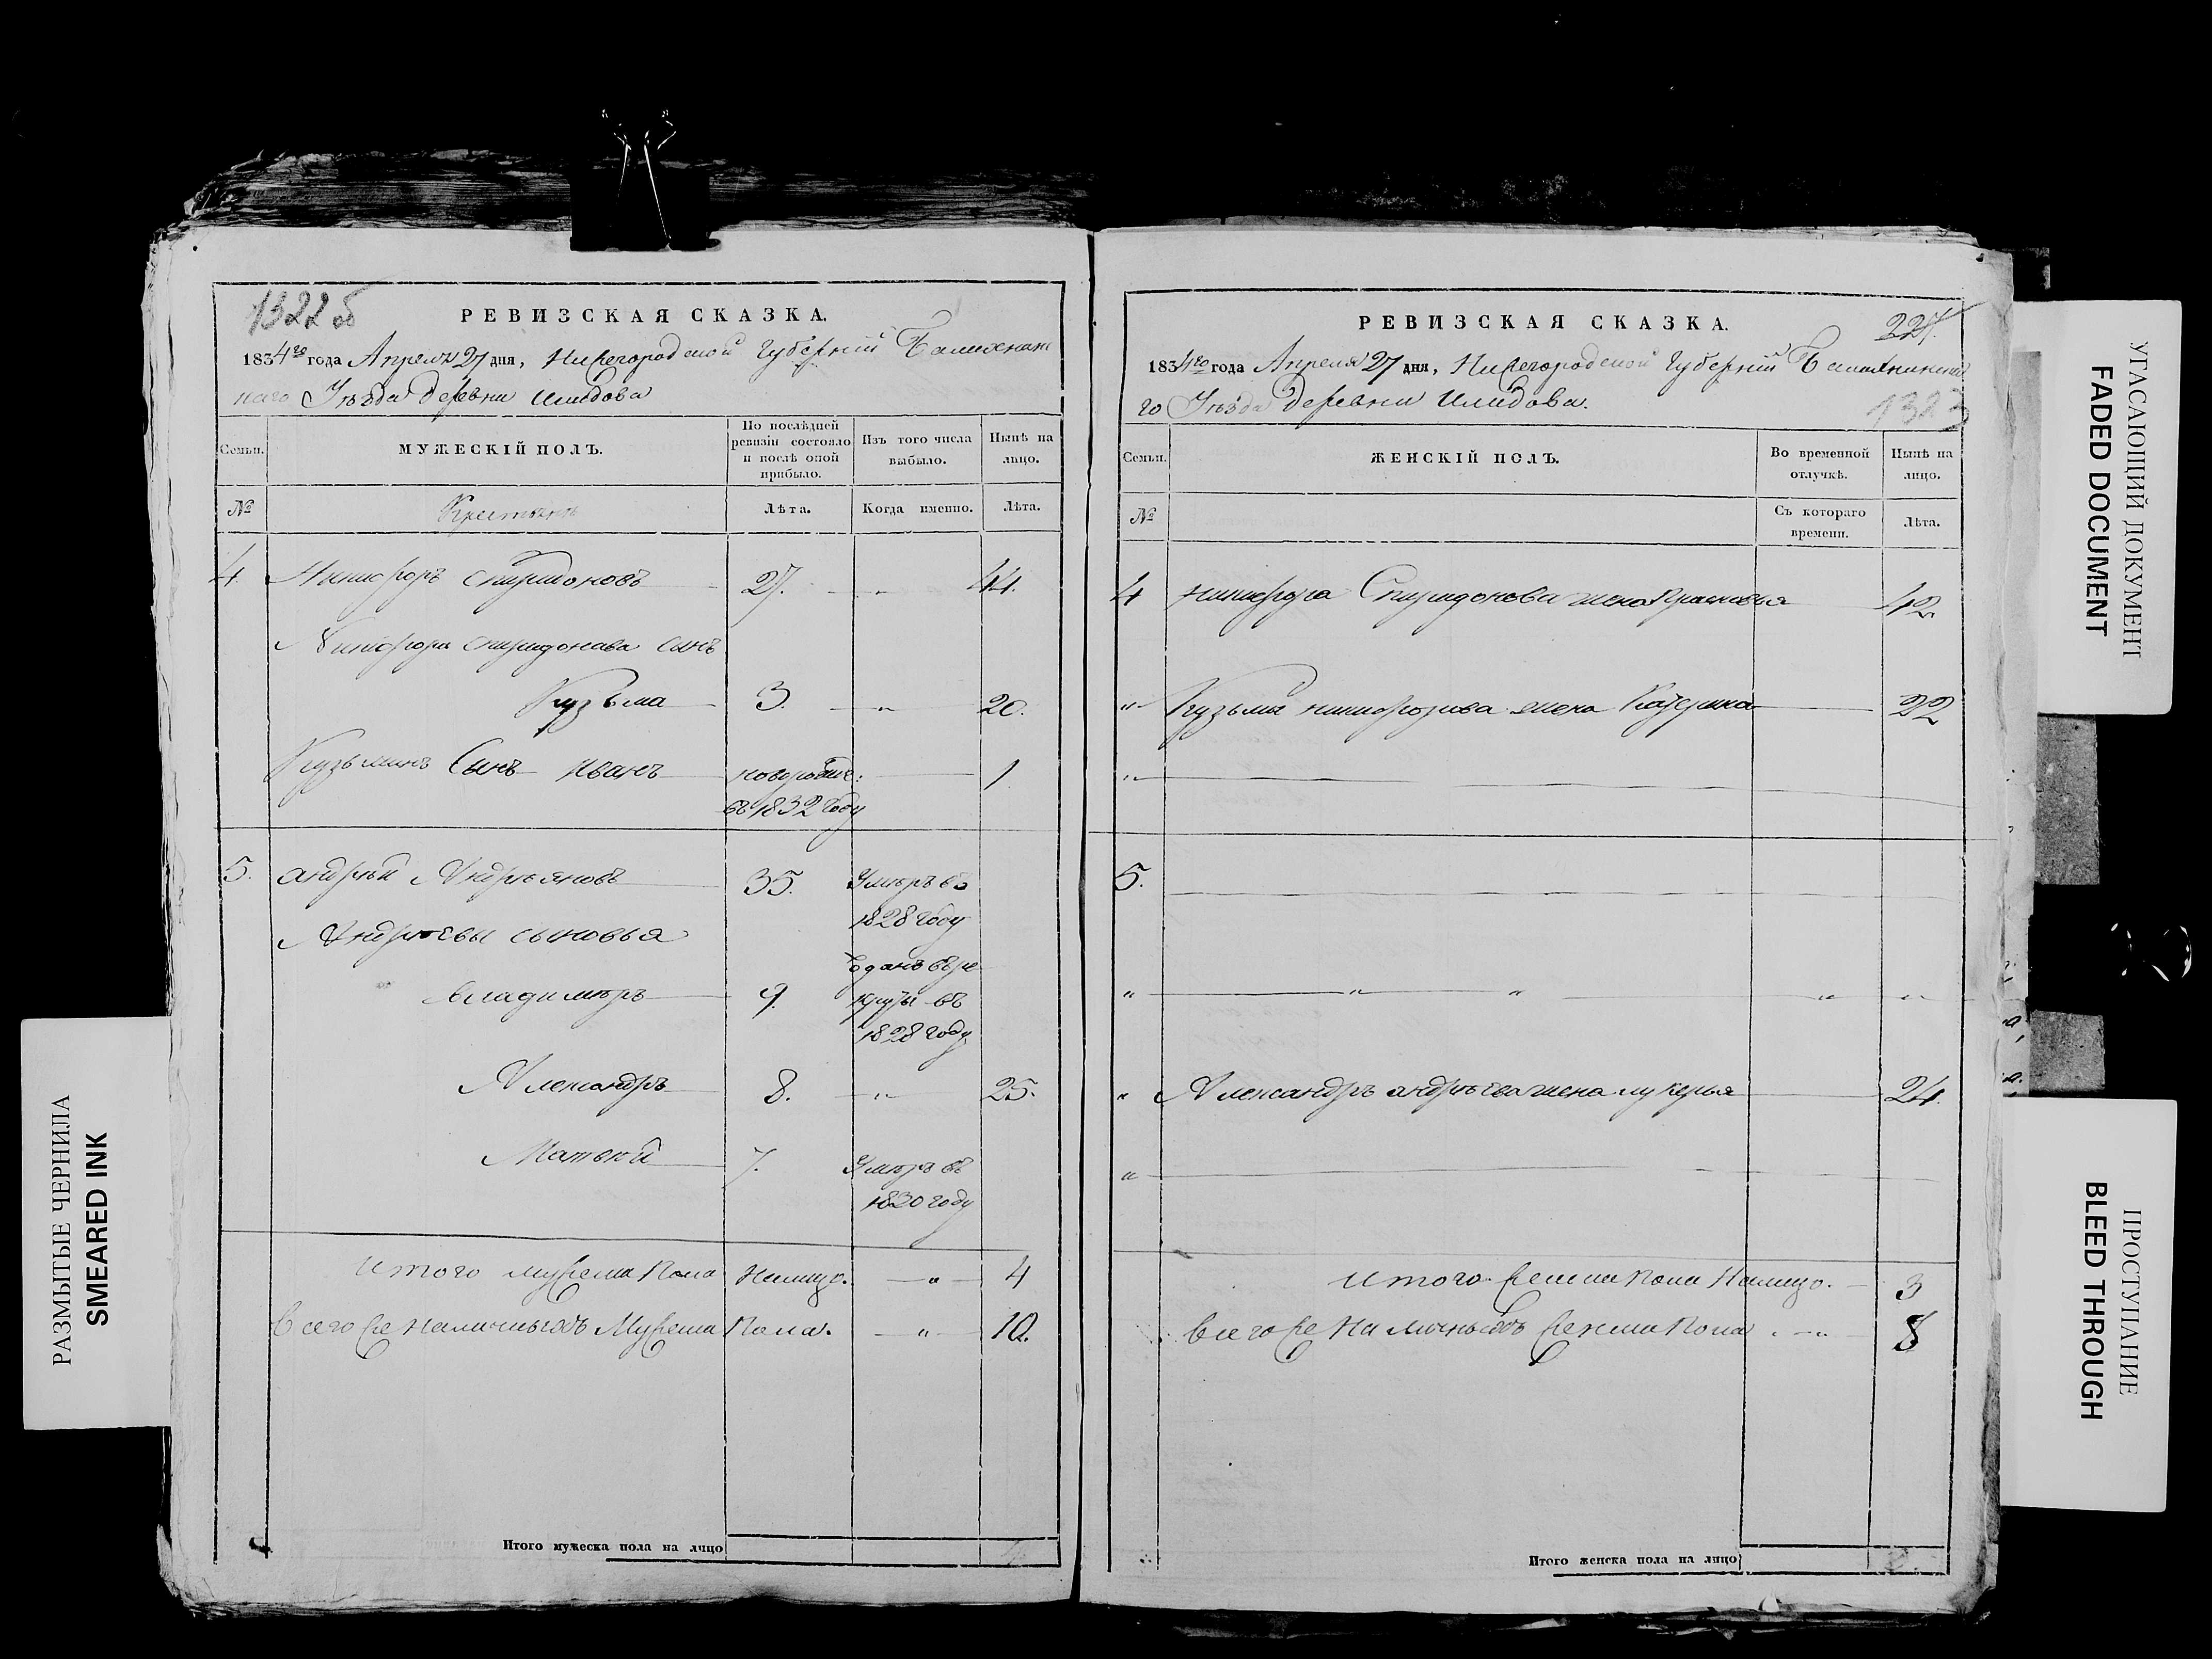 1322 об
РЕВИЗСКАЯ СКАЗКА.
1834го года Апреля 27 дня, Нижегородской Губерніи Балахнин
наго Уѣзда Деревни
Семьи.
МУЖЕСКІЙ ПОЛЪ.
По послѣдней ревизіи состояло и послѣ оной прибыло.
Изъ того числа выбыло.
Нынѣ на лицо.
№
Крестьянъ
Лѣта.
Когда именно.
Лѣта.
4. Никифоръ Спиридоновъ 27. — „ 44.
Никифора Спиридонова сынъ
Кузьма 3. — „ 20.
Кузьминъ Сынъ Иванъ новорожде: 1.
въ 1832 году
5. Андрѣй Андрѣяновъ 35. Умѣръ въ
1828 году
Андрѣевы сыновья
отданъ въ ре
Владимѣръ 9. круты въ
1828 году
Александръ 8. — „ 25.
Матвѣй 7. Умѣръ въ
1830 году
Итого мужеска Пола Налицо. — „ — 4
Всего же Наличныхъ Мужеска Пола. — „ — 10.
Итого мужеска пола на лицо
РЕВИЗСКАЯ СКАЗКА.
227.
1834го года Апреля 27 дня, Нижегородской Губерніи Балахнинска
го Уѣзда Деревни
1323
Семьи.
ЖЕНСКІЙ ПОЛЪ.
Во временной отлучкѣ.
Нынѣ на лицо.
№
Съ котораго времени.
Лѣта.
4 Никифора Спиридонова жена Прасковья 42
„ Кузьмы Никифорова жена Катерина 22
„
5.
„ „ „ „ „
„ Александръ Андрѣева жена Лукерья 24.
„
Итого женска Пола Налицо. — 3
Всего же Наличныхъ женска Пола — „ 8
Итого женска пола на лицо
РАЗМЫТЫЕ ЧЕРНИЛА
SMEARED INK
УГАСАЮЩИЙ ДОКУМЕНТ
FADED DOCUMENT
ПРОСТУПАНИЕ
BLEED THROUGH